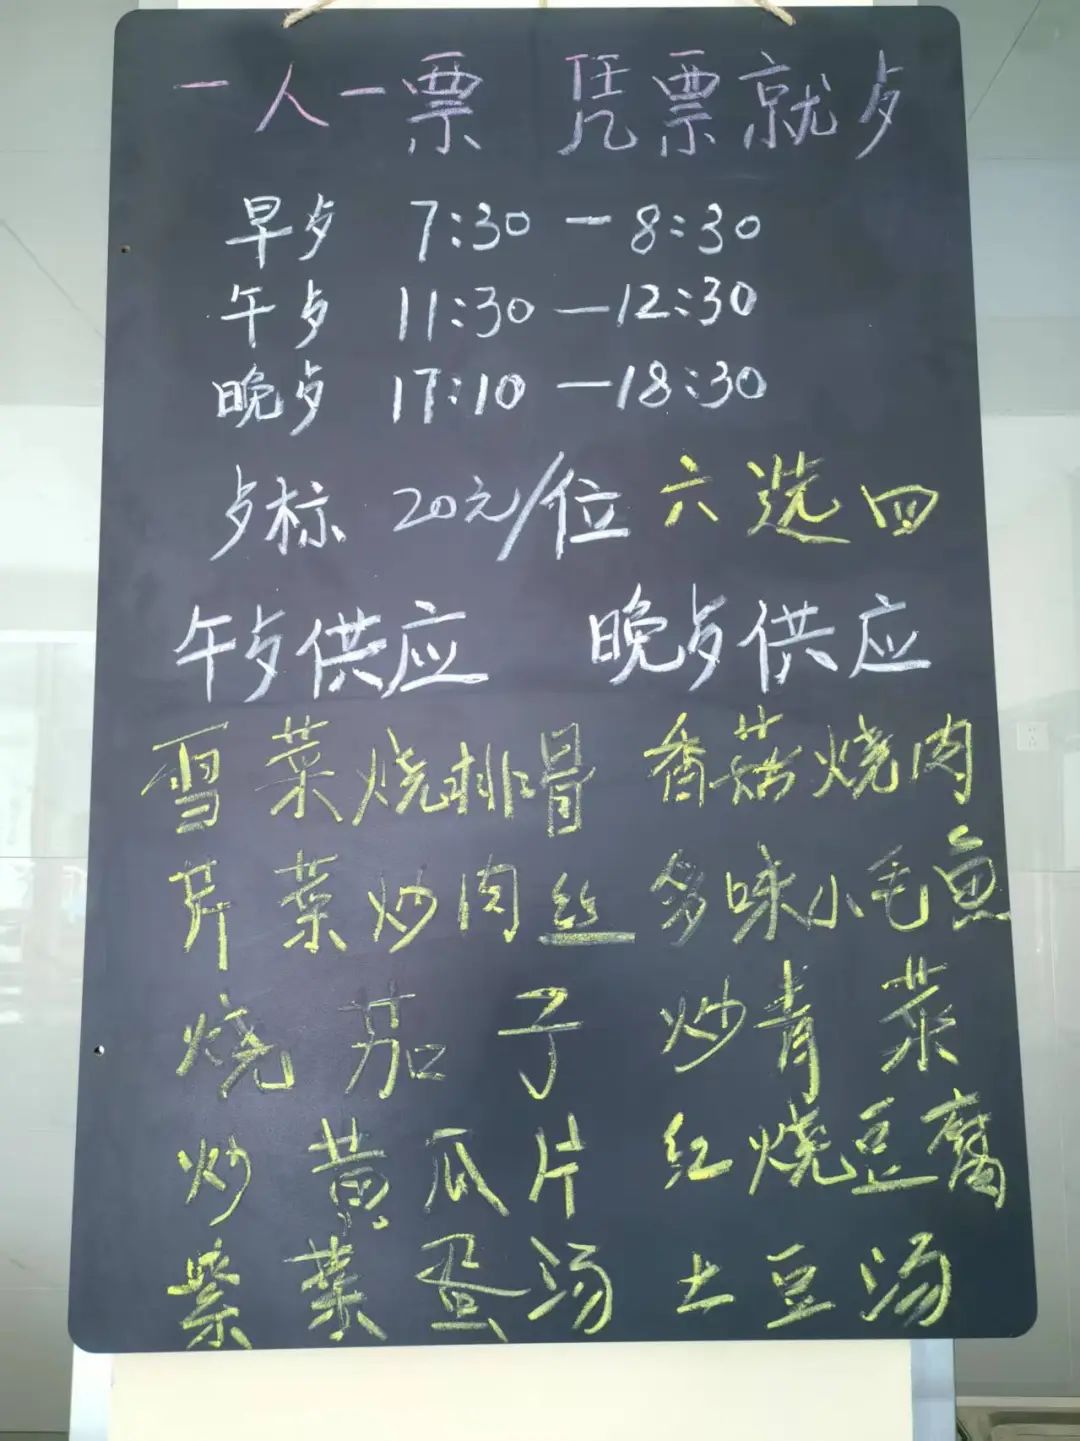 一人一票 凭票就歺
早歺 7:30 — 8:30
午歺 11:30 — 12:30
晚歺 17:10 — 18:30
歺标 20元/位 六选四
午歺供应 晚歺供应
雪菜烧排骨 香菇烧肉
芹菜炒肉丝 多味小毛鱼
烧茄子 炒青菜
炒黄瓜片 红烧豆腐
紫菜蛋汤 土豆汤